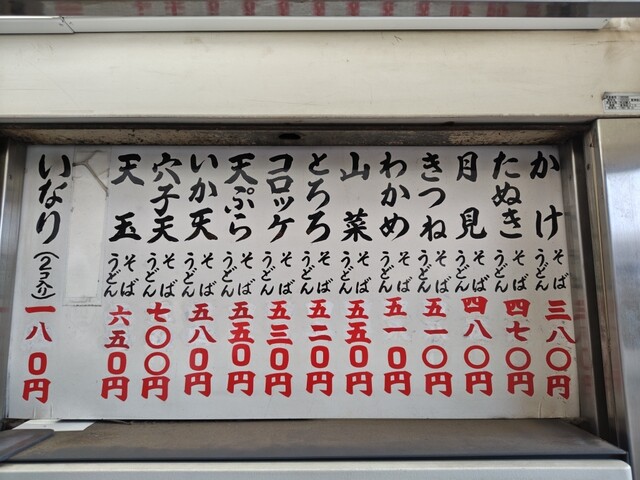 かけ そば うどん 三八〇円
たぬき そば うどん 四七〇円
月見 そば うどん 四八〇円
きつね そば うどん 五一〇円
わかめ そば うどん 五一〇円
山菜 そば うどん 五五〇円
とろろ そば うどん 五二〇円
コロッケ そば うどん 五三〇円
天ぷら そば うどん 五五〇円
いか天 そば うどん 五八〇円
穴子天 そば うどん 七〇〇円
天玉 そば うどん 六五〇円
いなり(2コ入) 一八〇円